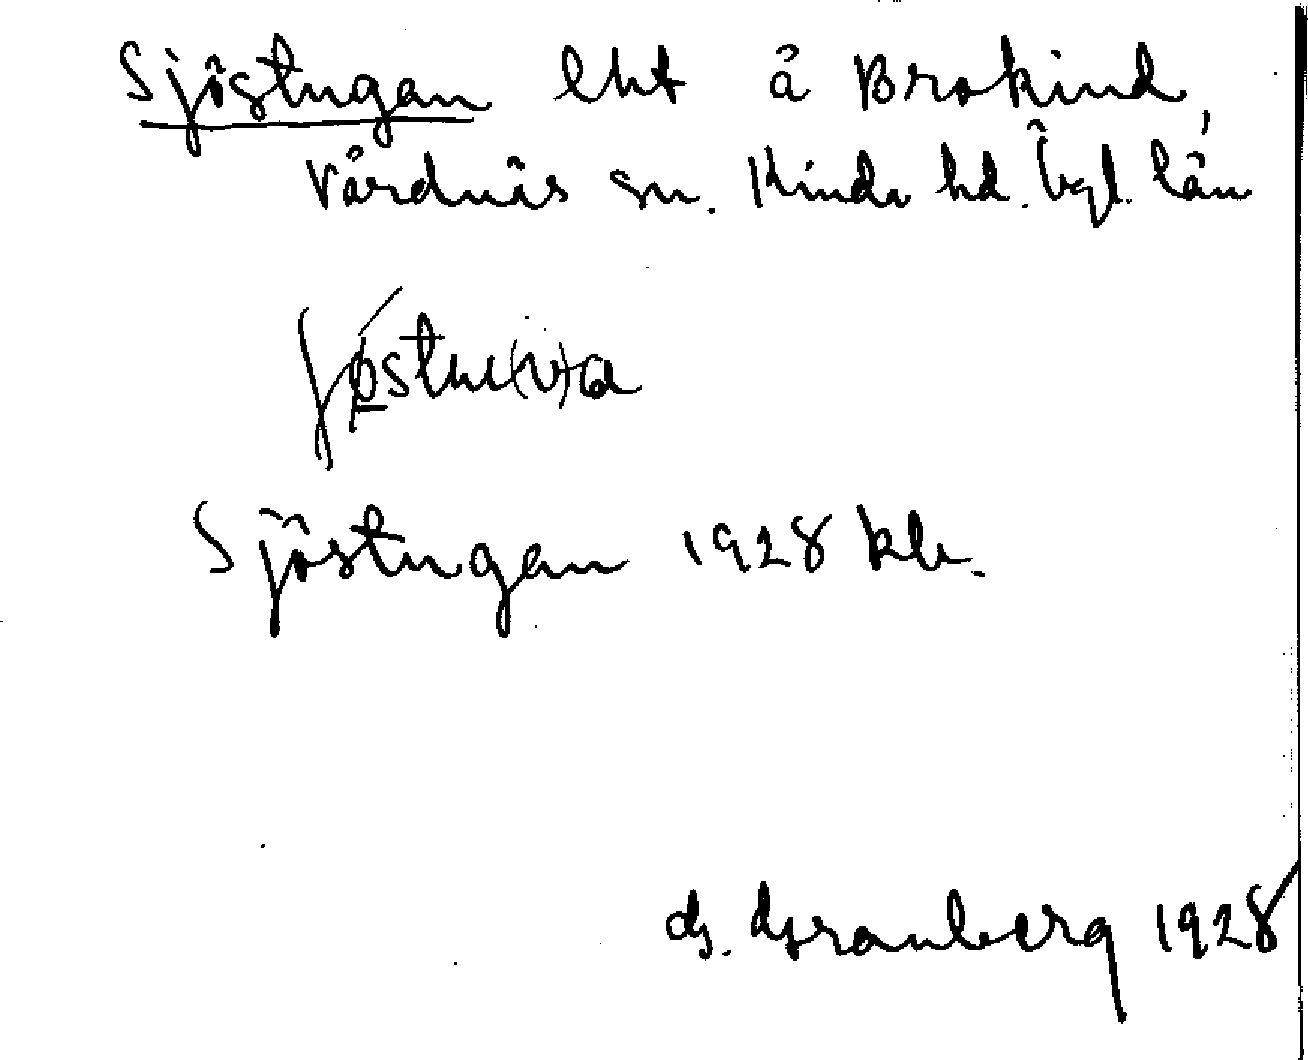 Sjöstugan lht å Brokind,
Vårdnäs sn. Kinds hd. Ögl. län
Sjöstugan 1928 kb.
G. Granberg 1928